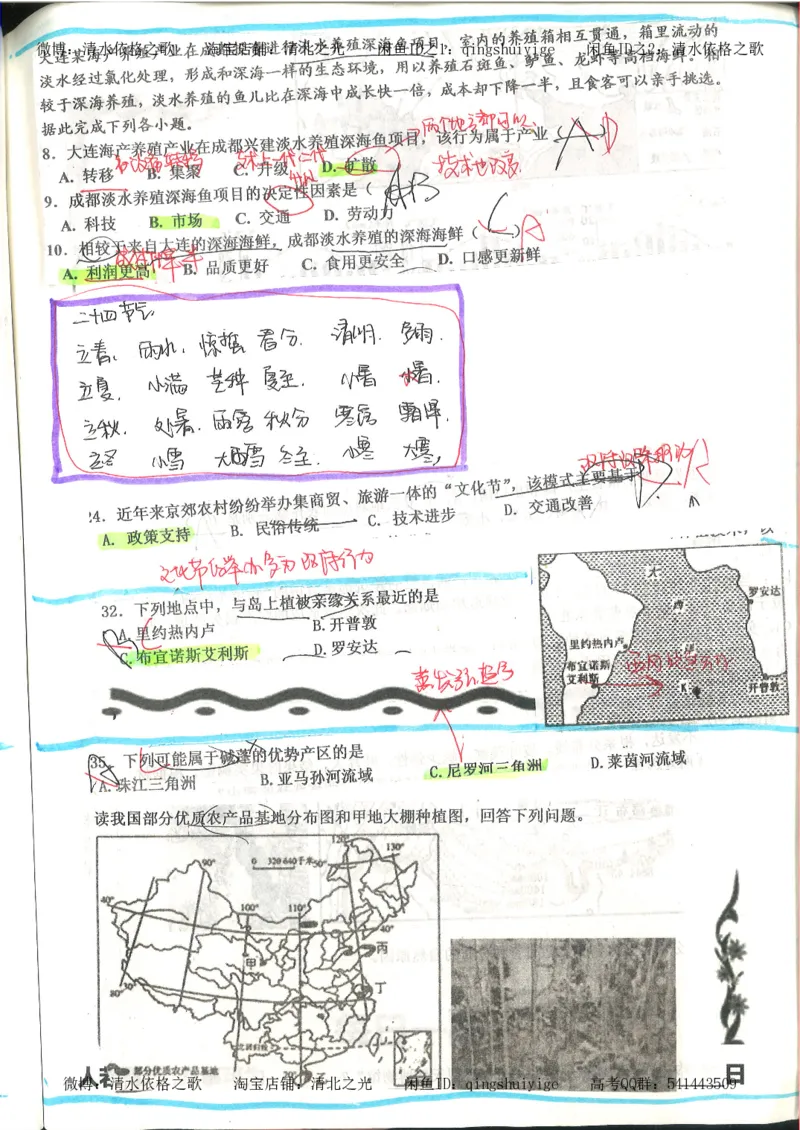 微博：清水依格之歌 淘宝店铺：清北之光 闲鱼ID之1：qingshuiyige 闲鱼ID之2：清水依格之歌
淡水经过氯化处理，形成和深海一样的生态环境，用以养殖石斑鱼、鲈鱼、龙虾等高档海鲜。相
较于深海养殖，淡水养殖的鱼儿比在深海中成长快一倍，成本却下降一半，且食客可以亲手挑选。
据此完成下列各小题。
8．大连海产养殖产业在成都兴建淡水养殖深海鱼项目，该行为属于产业（ A ） D
A. 转移 B. 集聚 C. 升级 D. 扩散
9．成都淡水养殖深海鱼项目的决定性因素是（ A B
A. 科技 B. 市场 C. 交通 D. 劳动力
10．相较于来自大连的深海海鲜，成都淡水养殖的深海海鲜（ C ） A
成本下降
A. 利润更高 B. 品质更好 C. 食用更安全 D. 口感更新鲜
二十四节气
立春、雨水、惊蛰 春分 清明 谷雨
立夏 小满 芒种 夏至 小暑 大暑
立秋 处暑 白露 秋分 寒露 霜降
立冬 小雪 大雪 冬至 小寒 大寒
24．近年来京郊农村纷纷举办集商贸、旅游一体的“文化节”，该模式主要基于
A. 政策支持 B. 民俗传统 C. 技术进步 D. 交通改善
文化节的举办多为政府行为
32．下列地点中，与岛上植被亲缘关系最近的是
A. 里约热内卢 B. 开普敦
C. 布宜诺斯艾利斯 D. 罗安达
大
西
洋
罗安达
里约热内卢
布宜诺斯
艾利斯
开普敦
35．下列可能属于碱蓬的优势产区的是
A. 珠江三角洲 B. 亚马孙河流域 C. 尼罗河三角洲 D. 莱茵河流域
读我国部分优质农产品基地分布图和甲地大棚种植图，回答下列问题。
0 320 640千米
120° 130°
90° 50°
40° 100° 110°
40°
甲
丙
丁
30°
北回归线
20°
部分优质农产品基地
微博：清水依格之歌 淘宝店铺：清北之光 闲鱼ID：qingshuiyige 高考QQ群：541443509